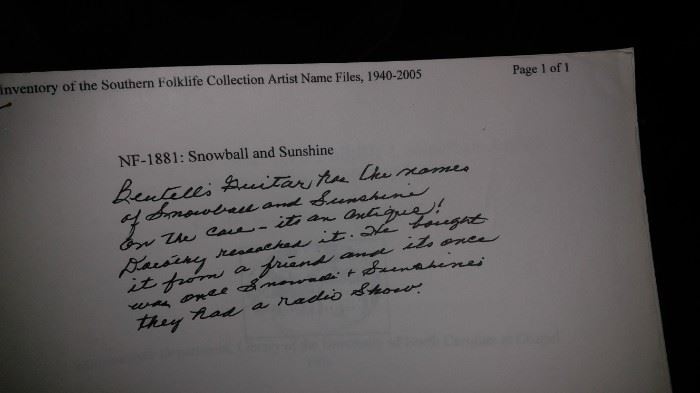 inventory of the Southern Folklife Collection Artist Name Files, 1940-2005
Page 1 of 1
NF-1881: Snowball and Sunshine
Guitar, has the names
of Snowball and Sunshine
on the case - its an antique!
Dorothy reseached it. He bought
it from a friend and its once
was once & Sunshines
they had a radio show.